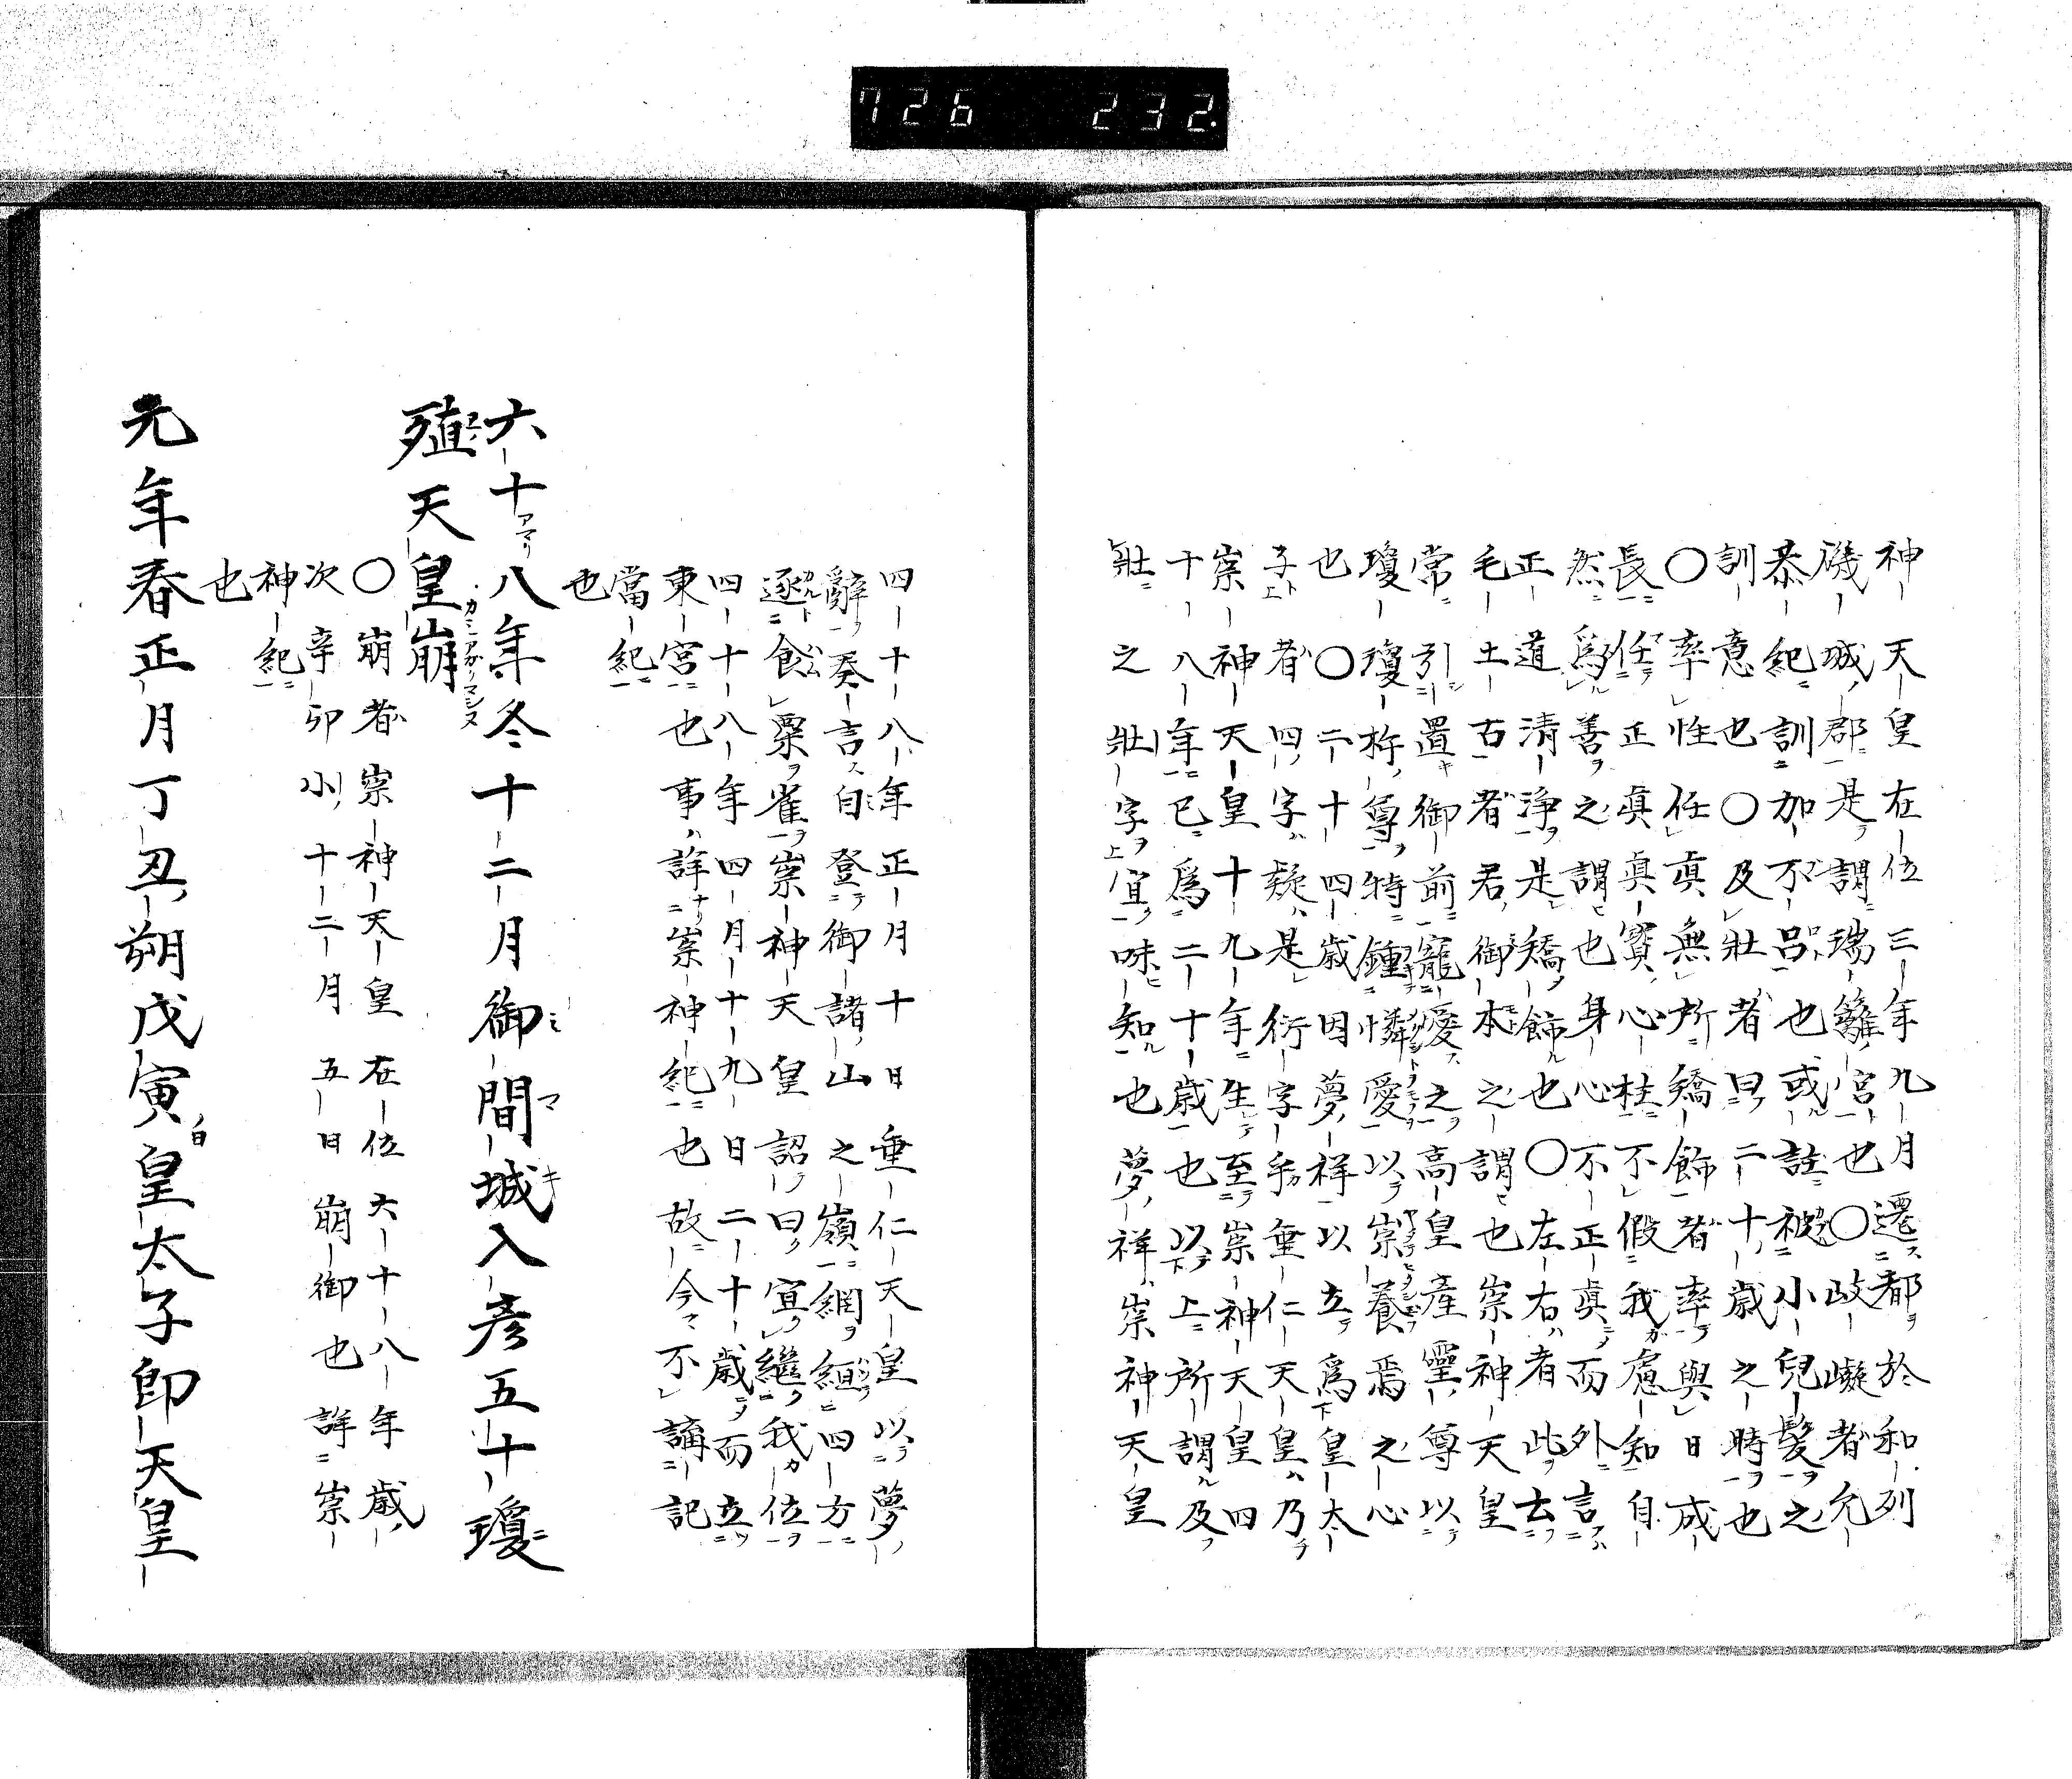 726 232
神天皇在位三年九月遷都於和列
磯城郡是謂瑞籬宮也〇岐嶷者允
恭紀訓加不呂也或註被小兒髮之
訓意也〇及壯者曰二十歲之時也
〇率性任眞無所矯飾者率與日成
長任正眞眞實心桂不假我慮知自
然爲善之謂也身心不正眞而外言
正道清淨是矯飾也〇左右者此云
毛土古者君御本之謂也崇神天皇
常引置御前寵愛之高皇產靈尊以
瓊瓊杵尊特鍾憐愛以崇養焉之心
也〇二十四歲因夢祥以立爲皇太
子者四字疑是衍字乎垂仁天皇乃
崇神天皇十九年生至崇神天皇四
十八年已爲二十歲也以上所謂及
壯之壯字宜味知也夢祥崇神天皇
四十八年正月十日垂仁天皇以夢
辭奏言自登御諸山之嶺繩絚四方
逐食粟雀崇神天皇詔曰宜繼我位
四十八年四月十九日二十歲而立
東宮也事詳崇神紀也故今不講記
當紀也
六十八年冬十二月御間城入彥五十瓊
殖天皇崩
〇崩者崇神天皇在位六十八年歲
次辛卯小十二月五日崩御也詳崇
神紀也
元年春正月丁丑朔戊寅皇太子即天皇